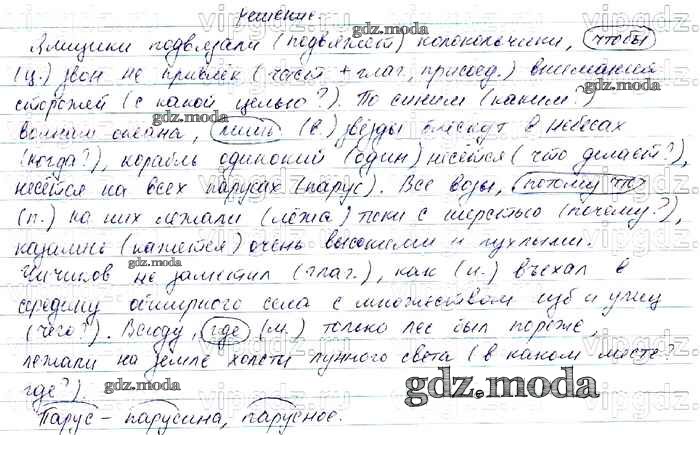 Решение.
Ямщики подвязали (подвяжет) колокольчики, чтобы
(ц.) звон не привлёк (част + глаг, присоед.) внимание
сторожей (с какой целью?). По синим (каким?)
волнам океана, лишь (в.) звёзды блеснут в небесах
(когда?), корабль одинокий (один) несётся (что делает?),
несётся на всех парусах (парус). Все возы, потому что
(п.) на них лежали (лёжа) тюки с шерстью (почему?),
казались (кажется) очень высокими и пухлыми.
Чичиков не заметил (глаг.), как (и.) въехал в
средину обширного села с множеством изб и улиц
(чего?). Всюду, где (м.) только лес был пореже,
лежали на земле холсты лунного света (в каком месте?
где?).
Парус - парусина, парусное.
gdz.moda
gdz.moda
gdz.moda
gdz.moda
gdz.moda
gdz.moda
gdz.moda
gdz.moda